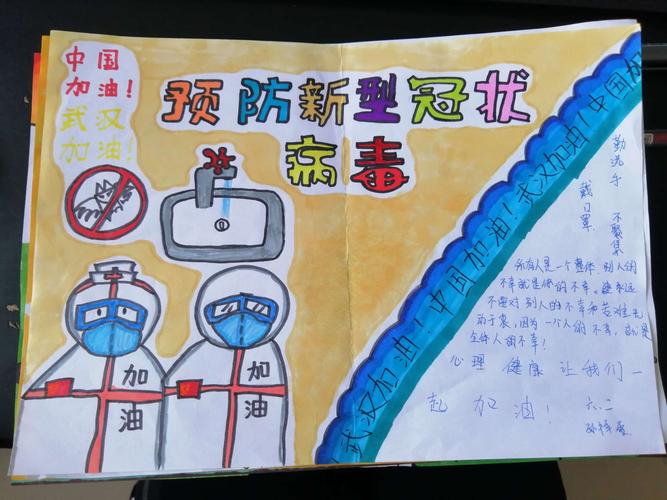 中国
加油！
武汉
加油！
预防新型冠状
病毒
加
油
加
油
武汉加油！中国加油！武汉加油！中国加
勤洗手
戴口罩
不聚集
所有人是一个整体，别人的
不幸就是你的不幸。永远
不要对别人的不幸和苦难无
动于衷，因为一个人的不幸，就是
全体人的不幸！
心理 健康 让我们一
起 加油！
六.二